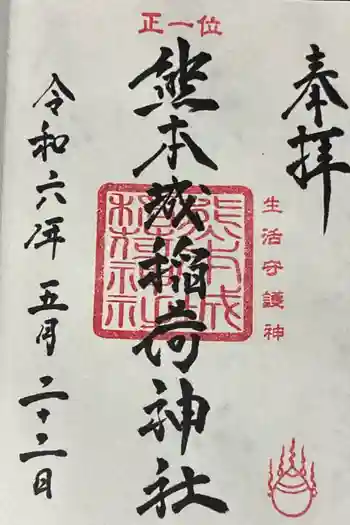 正一位
奉拝
生活守護神
熊本城稲荷神社
熊本城稲荷神社
令和六年五月二十二日